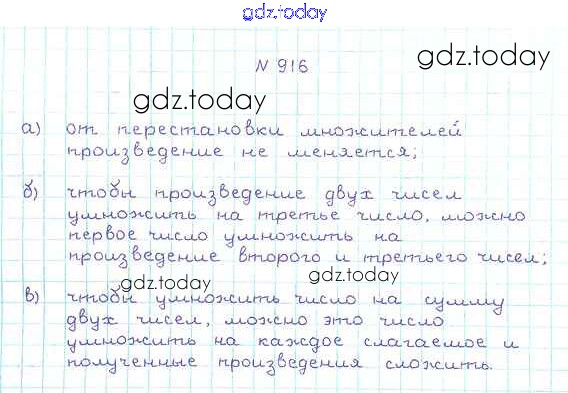 gdz.today
№ 916
gdz.today
gdz.today
а) от перестановки множителей
произведение не меняется;
б) чтобы произведение двух чисел
умножить на третье число, можно
первое число умножить на
произведение второго и третьего чисел;
gdz.today
gdz.today
в) чтобы умножить число на сумму
двух чисел, можно это число
умножить на каждое слагаемое и
полученные произведения сложить.